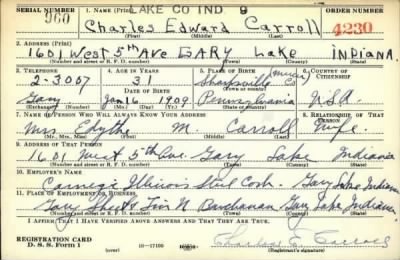 LAKE CO IND 9
SERIAL NUMBER 1. NAME (Print) ORDER NUMBER
960 Charles Edward Carroll 4230
2. ADDRESS (Print)
1601 West 5th Ave GARY Lake INDIANA.
(Number and street or R. F. D. number) (Town) (County) (State)
3. TELEPHONE 4. AGE IN YEARS 5. PLACE OF BIRTH 6. COUNTRY OF CITIZENSHIP
2-3007 31 Sharpsville (Mercer Co)
DATE OF BIRTH (Town or county)
Gary Jan 16 1909 Pennsylvania USA
(Exchange) (Mo.) (Day) (Yr.) (State or country)
7. NAME OF PERSON WHO WILL ALWAYS KNOW YOUR ADDRESS 8. RELATIONSHIP OF THAT PERSON
Mrs. Edyth M. Carroll Wife
(Mr., Mrs., Miss) (First) (Middle) (Last)
9. ADDRESS OF THAT PERSON
1601 West 5th Ave. Gary Lake Indiana
(Number and street or R. F. D. number) (Town) (County) (State)
10. EMPLOYER'S NAME
Carnegie Illinois Steel Corp. Gary Lake Indiana
11. PLACE OF EMPLOYMENT OR BUSINESS
Gary Sheet & Tin N Buchanan Gary Lake Indiana
(Number and street or R. F. D. number) (Town) (County) (State)
I AFFIRM THAT I HAVE VERIFIED ABOVE ANSWERS AND THAT THEY ARE TRUE.
REGISTRATION CARD
D. S. S. Form 1 16-17105 Charles E. Carroll
(Registrant's signature)